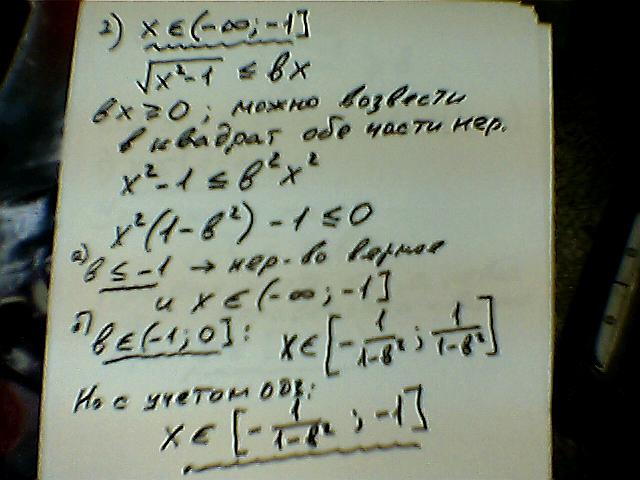 2) x ∈ (-∞; -1]
√x²-1 ≤ вx
вx ≥ 0; можно возвести
в квадрат обе части нер.
x² - 1 ≤ в²x²
x²(1-в²) - 1 ≤ 0
а) в ≤ -1 → нер-во верное
и x ∈ (-∞; -1]
б) в ∈ (-1; 0]: x ∈ [-1/1-в²; 1/1-в²]
Но с учетом одз:
x ∈ [-1/1-в²; -1]